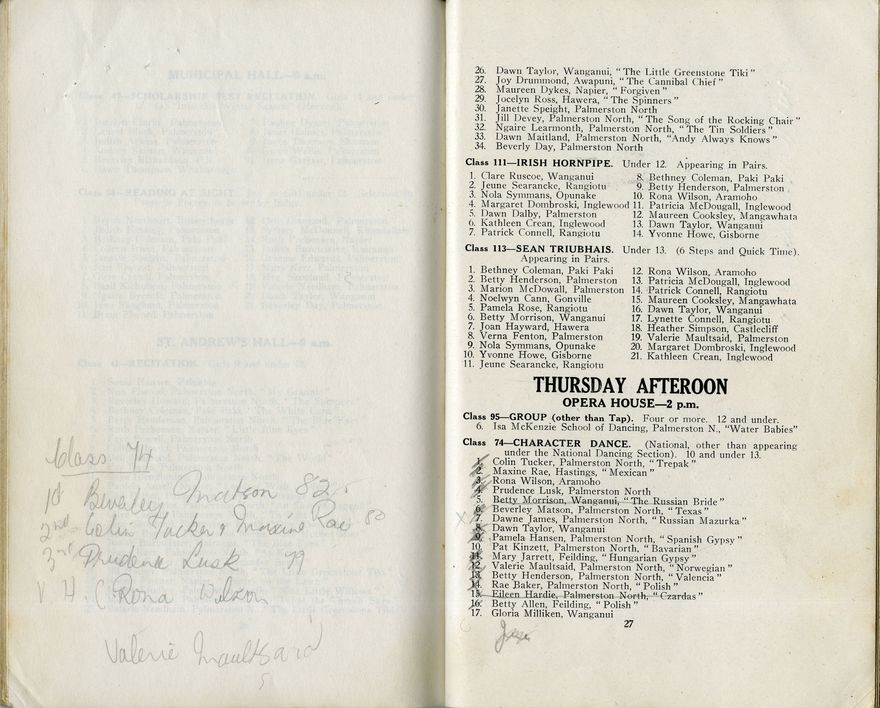 MUNICIPAL HALL—9 a.m.
ST. ANDREW'S HALL—9 a.m.
Class 74
1st Beverley Matson 82.
2nd Colin Tucker & Maxine Rae 80
3rd Prudence Lusk 79
V. H. C Rona Wilson
Valerie Maultsaid
26. Dawn Taylor, Wanganui, "The Little Greenstone Tiki"
27. Joy Drummond, Awapuni, "The Cannibal Chief"
28. Maureen Dykes, Napier, "Forgiven"
29. Jocelyn Ross, Hawera, "The Spinners"
30. Janette Speight, Palmerston North
31. Jill Devey, Palmerston North, "The Song of the Rocking Chair"
32. Ngaire Learmonth, Palmerston North, "The Tin Soldiers"
33. Dawn Maitland, Palmerston North, "Andy Always Knows"
34. Beverly Day, Palmerston North
Class 111—IRISH HORNPIPE. Under 12. Appearing in Pairs.
1. Clare Ruscoe, Wanganui
2. Jeune Searancke, Rangiotu
3. Nola Symmans, Opunake
4. Margaret Dombroski, Inglewood
5. Dawn Dalby, Palmerston
6. Kathleen Crean, Inglewood
7. Patrick Connell, Rangiotu
8. Bethney Coleman, Paki Paki
9. Betty Henderson, Palmerston
10. Rona Wilson, Aramoho
11. Patricia McDougall, Inglewood
12. Maureen Cooksley, Mangawhata
13. Dawn Taylor, Wanganui
14. Yvonne Howe, Gisborne
Class 113—SEAN TRIUBHAIS. Under 13. (6 Steps and Quick Time).
Appearing in Pairs.
1. Bethney Coleman, Paki Paki
2. Betty Henderson, Palmerston
3. Marion McDowall, Palmerston
4. Noelwyn Cann, Gonville
5. Pamela Rose, Rangiotu
6. Betty Morrison, Wanganui
7. Joan Hayward, Hawera
8. Verna Fenton, Palmerston
9. Nola Symmans, Opunake
10. Yvonne Howe, Gisborne
11. Jeune Searancke, Rangiotu
12. Rona Wilson, Aramoho
13. Patricia McDougall, Inglewood
14. Patrick Connell, Rangiotu
15. Maureen Cooksley, Mangawhata
16. Dawn Taylor, Wanganui
17. Lynette Connell, Rangiotu
18. Heather Simpson, Castlecliff
19. Valerie Maultsaid, Palmerston
20. Margaret Dombroski, Inglewood
21. Kathleen Crean, Inglewood
THURSDAY AFTEROON
OPERA HOUSE—2 p.m.
Class 95—GROUP (other than Tap). Four or more. 12 and under.
6. Isa McKenzie School of Dancing, Palmerston N., "Water Babies"
Class 74—CHARACTER DANCE. (National, other than appearing
under the National Dancing Section). 10 and under 13.
1. Colin Tucker, Palmerston North, "Trepak"
2. Maxine Rae, Hastings, "Mexican"
3. Rona Wilson, Aramoho
4. Prudence Lusk, Palmerston North
5. Betty Morrison, Wanganui, "The Russian Bride"
6. Beverley Matson, Palmerston North, "Texas"
7. Dawne James, Palmerston North, "Russian Mazurka"
8. Dawn Taylor, Wanganui
9. Pamela Hansen, Palmerston North, "Spanish Gypsy"
10. Pat Kinzett, Palmerston North, "Bavarian"
11. Mary Jarrett, Feilding, "Hungarian Gypsy"
12. Valerie Maultsaid, Palmerston North, "Norwegian"
13. Betty Henderson, Palmerston North, "Valencia"
14. Rae Baker, Palmerston North, "Polish"
15. Eileen Hardie, Palmerston North, "Czardas"
16. Betty Allen, Feilding, "Polish"
17. Gloria Milliken, Wanganui
27